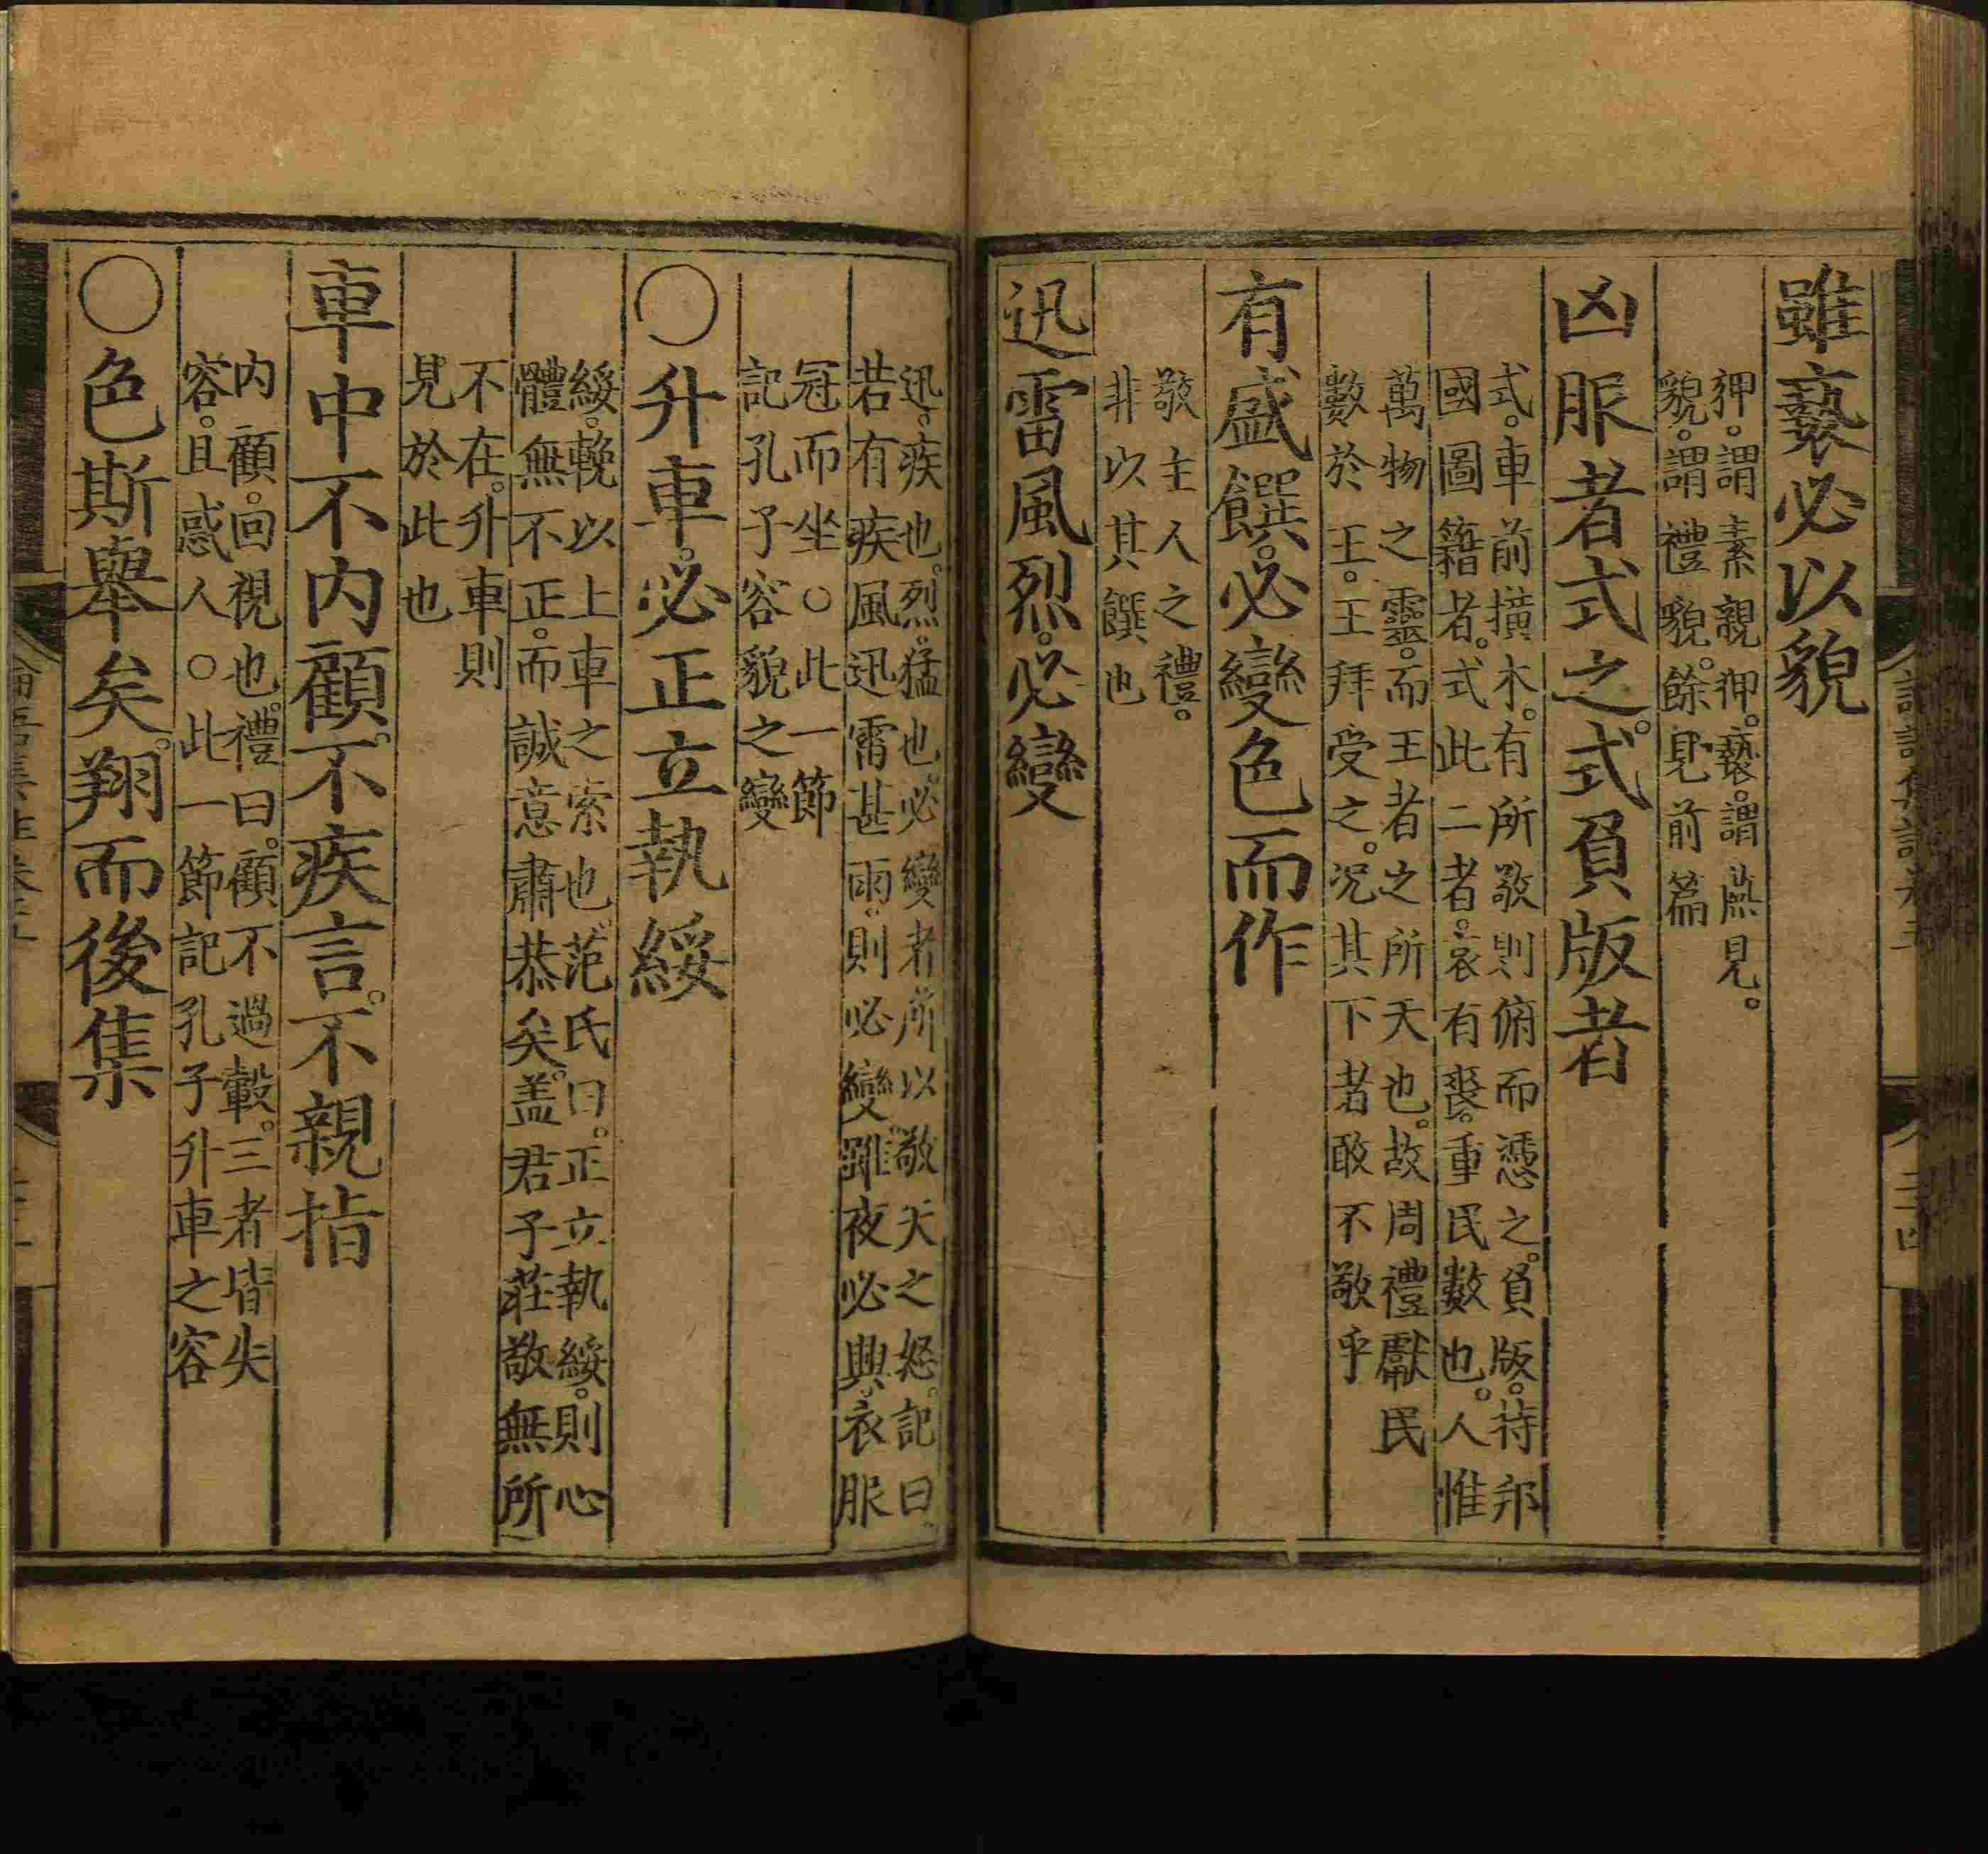 雖褻必以貌
狎。謂素親狎。褻。謂燕見。
貌。謂禮貌。餘見前篇
凶服者式之。式負版者
式。車前橫木。有所敬則俯而憑之。負版。持邦
國圖籍者。式此二者。哀有喪。重民數也。人惟
萬物之靈。而王者之所天也。故周禮獻民
數於王。王拜受之。況其下者敢不敬乎
有盛饌。必變色而作
敬主人之禮。
非以其饌也
迅雷風烈。必變
迅。疾也。烈。猛也。必變者。所以敬天之怒。記曰。
若有疾風迅雷甚雨。則必變。雖夜必興。衣服
冠而坐○此一節
記孔子容貌之變
○升車。必正立執綏
綏。輓以上車之索也。范氏曰。正立執綏。則心
體無不正。而誠意肅恭矣。盖君子莊敬無所
不在。升車則
見於此也
車中不內顧。不疾言。不親指
內顧。回視也。禮曰。顧不過轂。三者皆失
容。且惑人○此一節記孔子升車之容
○色斯舉矣。翔而後集